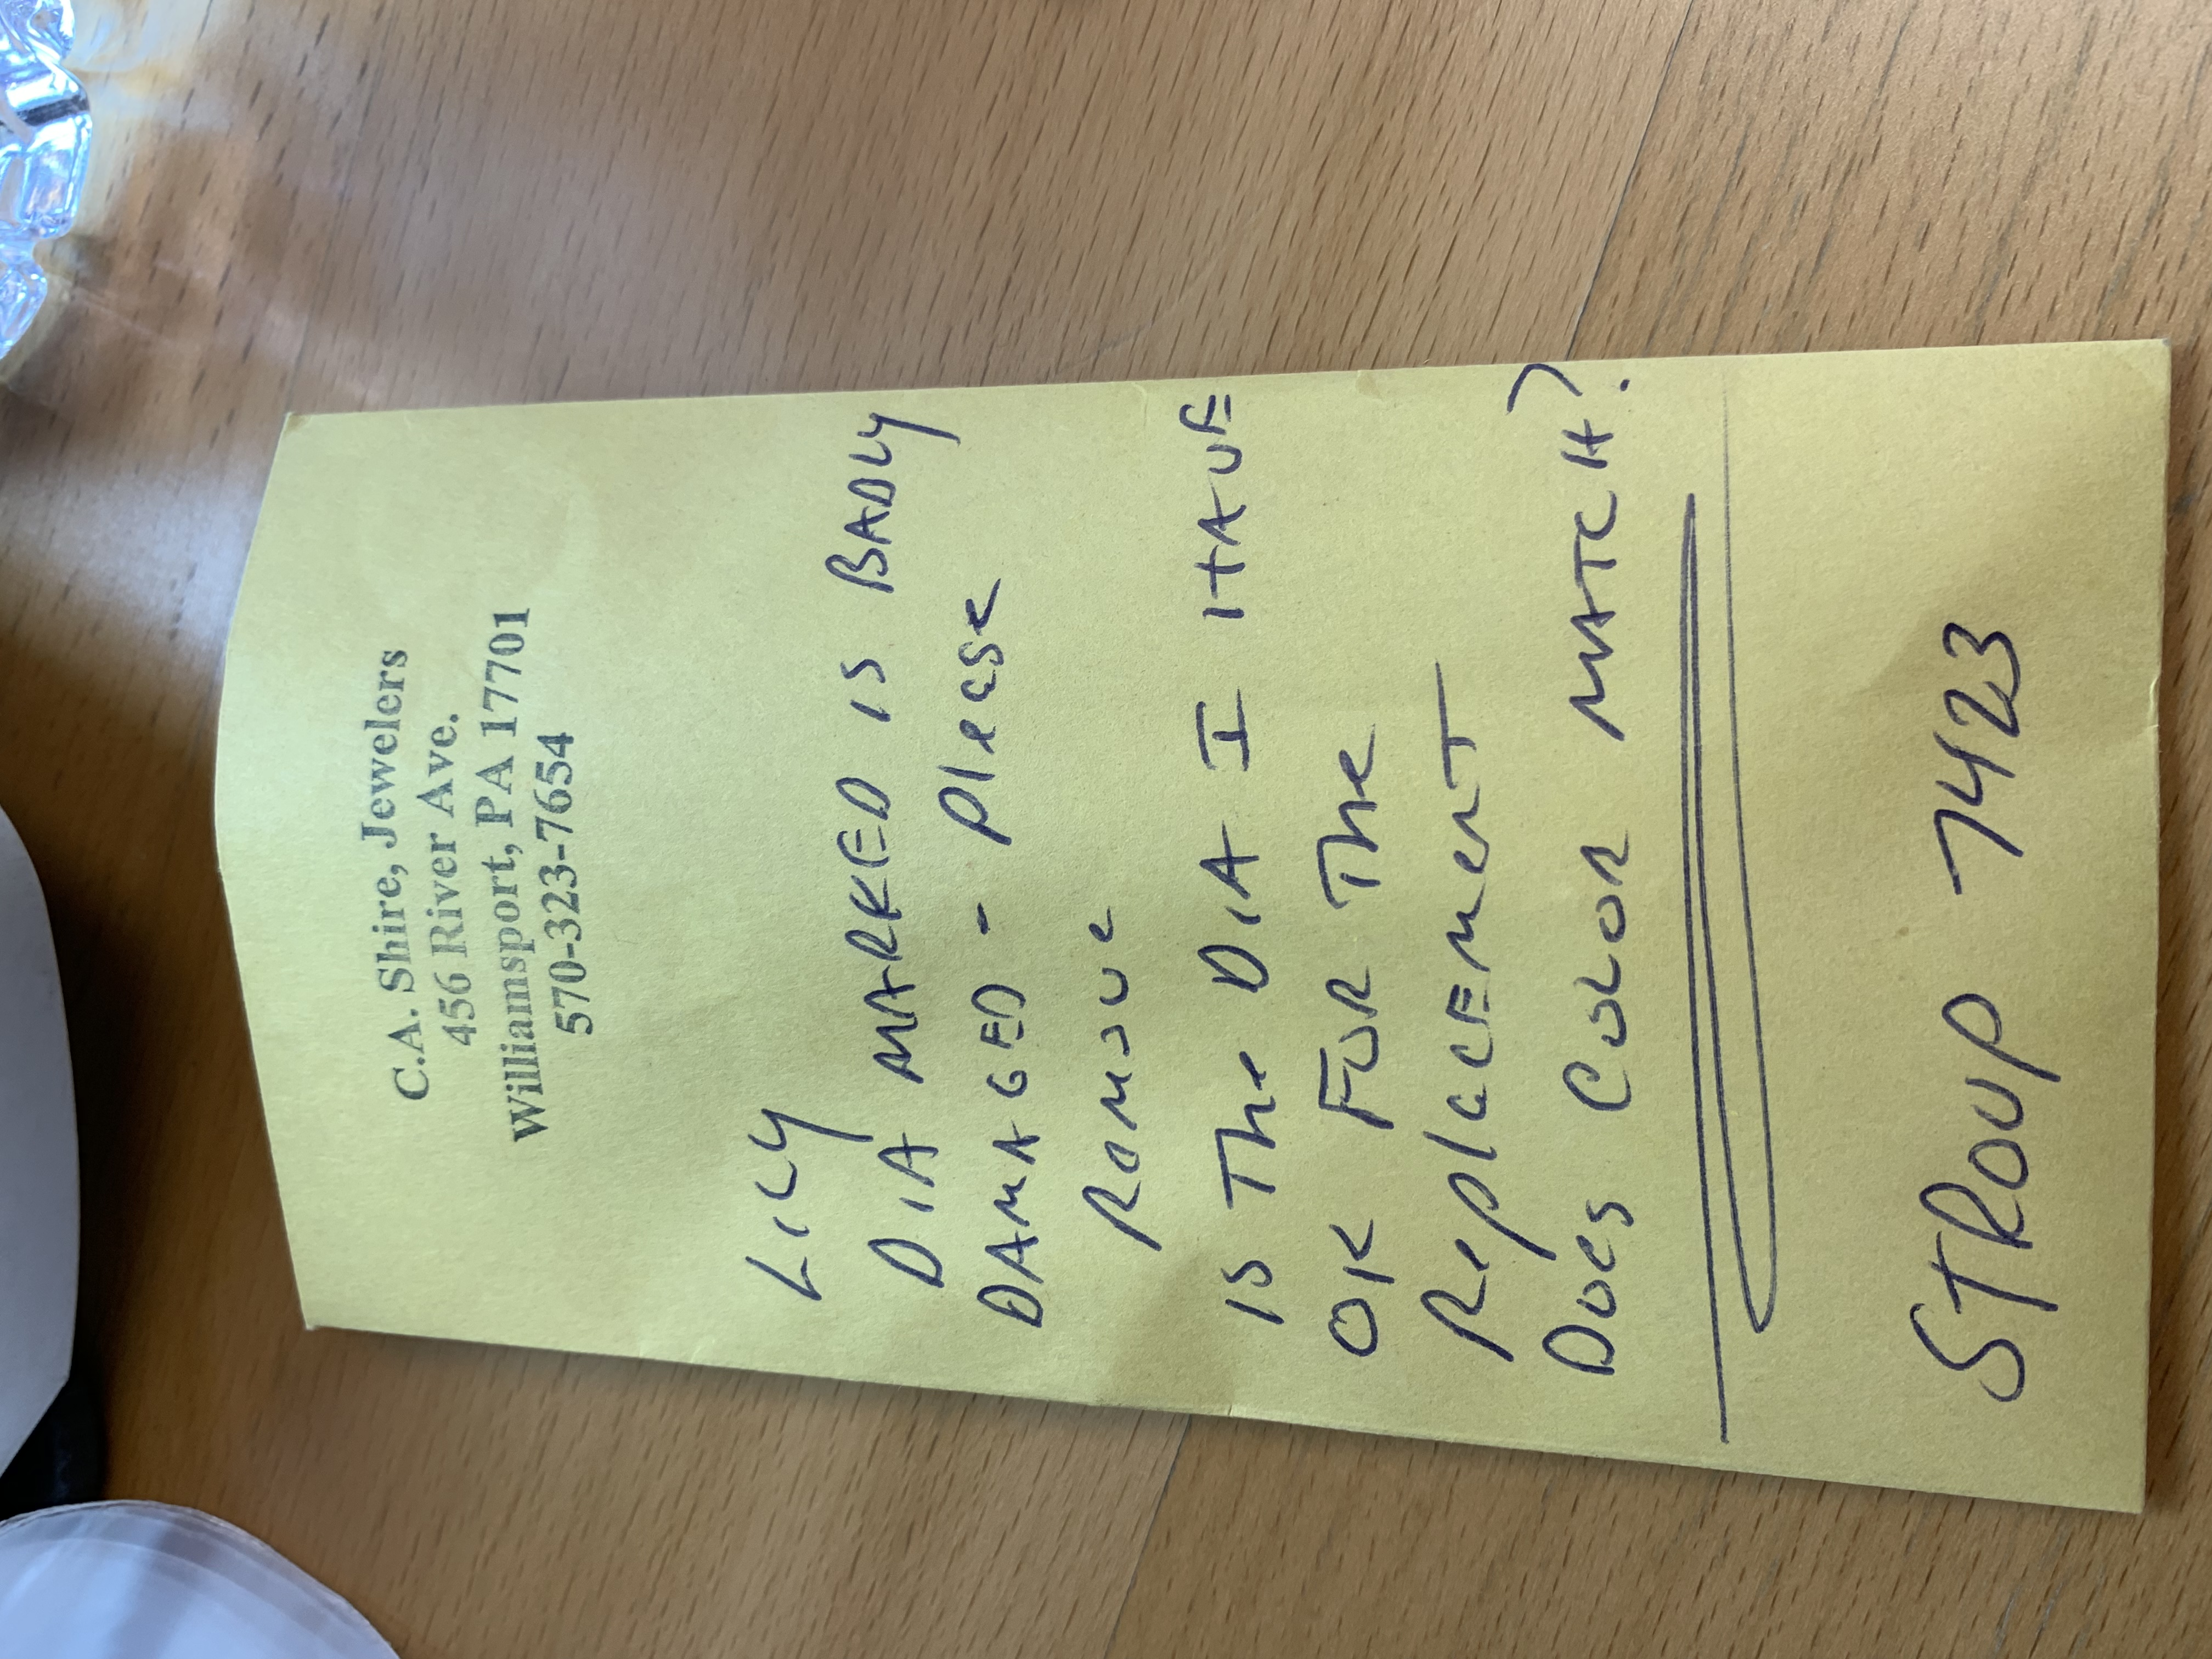 C.A. Shire, Jewelers
456 River Ave.
Williamsport, PA 17701
570-323-7654
LILY
DIA MARKED IS BADLY
DAMAGED - Please
Remove
IS The DIA I HAVE
OK FOR The
ReplacEMenT
Does COLOR MATCH?
STROUP 7423